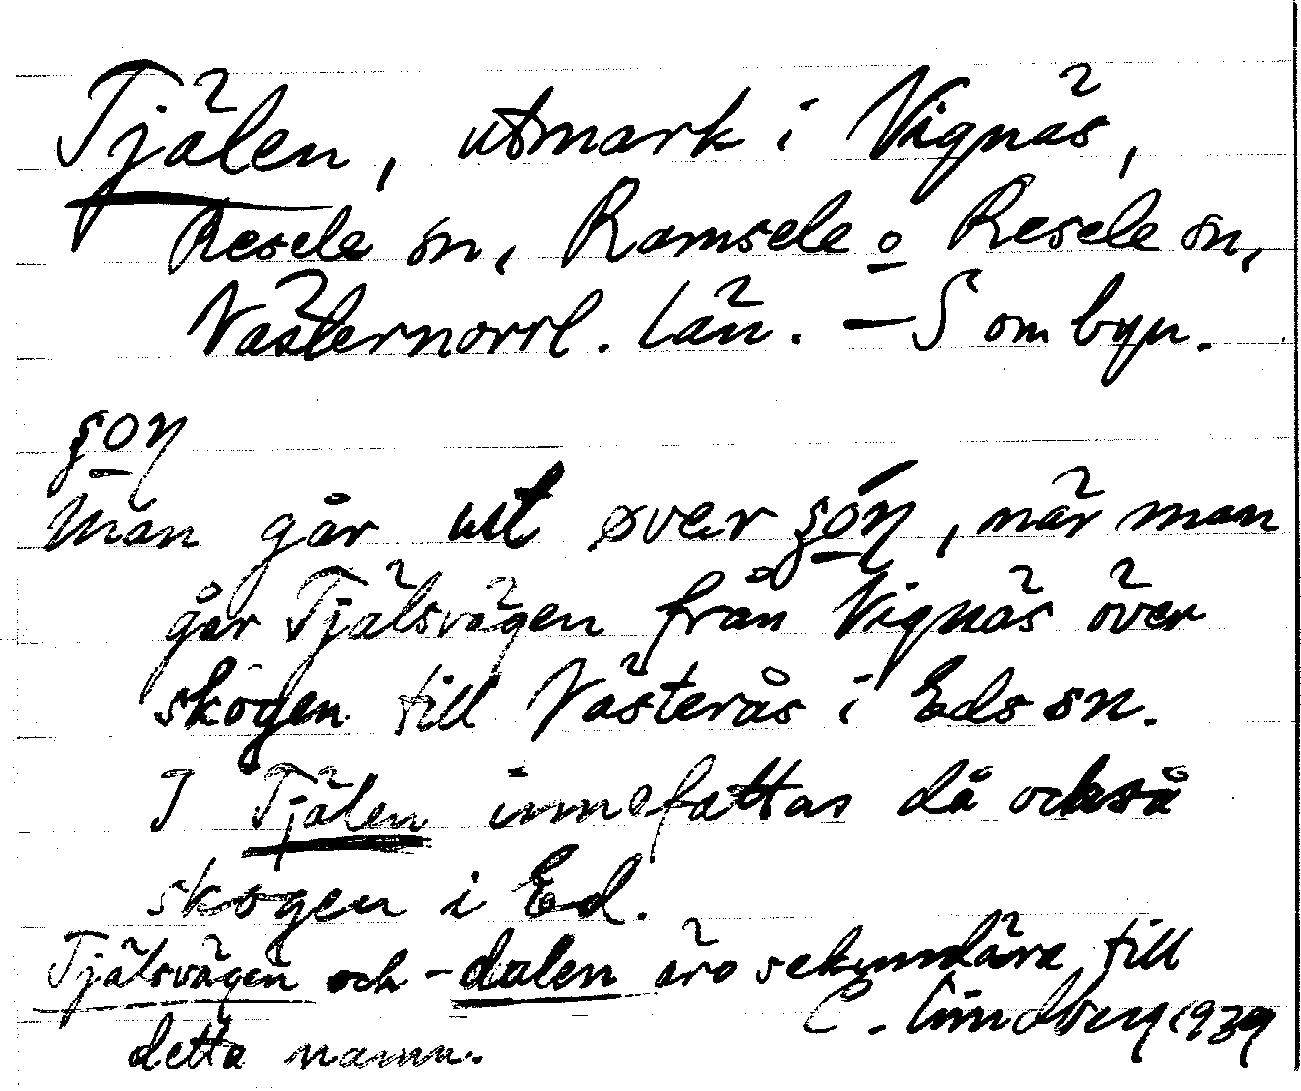 Tjälen, utmark i Vignäs,
Resele sn, Ramsele o Resele sn,
Västernorrl. län. — S om byn.
man går ut över, när man
går Tjälsvägen från Vignäs över
skogen till Västerås i Eds sn.
I Tjälen innefattas då också
skogen i Ed.
Tjälsvägen och -dalen äro sekundära till
detta namn.
C. Lindberg 1939